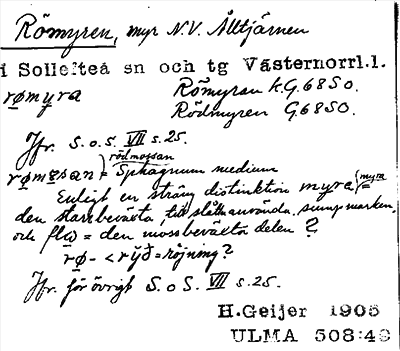 Römyren, myr N.V. Ålltjärnen
i Sollefteå sn och tg Västernorrl.l.
rømyra Römyran k.G.68SO.
Rödmyren G.68SO.
Jfr. S.o.S. VII s.25.
rødmossan
rømæsan = Sphagnum medium
Enligt en sträng distinktion myra (= myra
den starrbeväxta till slåtter använda sumpmarken,
och flω = den mossbeväxta delen ?
rø- < rȳð = röjning?
Jfr. för övrigt S.o S. VII s.25.
H.Geijer 1905
ULMA 508:49